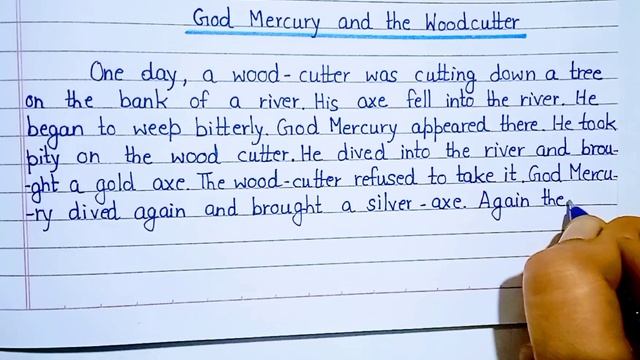 God Mercury and the Woodcutter
One day, a wood-cutter was cutting down a tree
on the bank of a river. His axe fell into the river. He
began to weep bitterly. God Mercury appeared there. He took
pity on the wood cutter. He dived into the river and brou-
-ght a gold axe. The wood-cutter refused to take it. God Mercu-
-ry dived again and brought a silver-axe. Again the